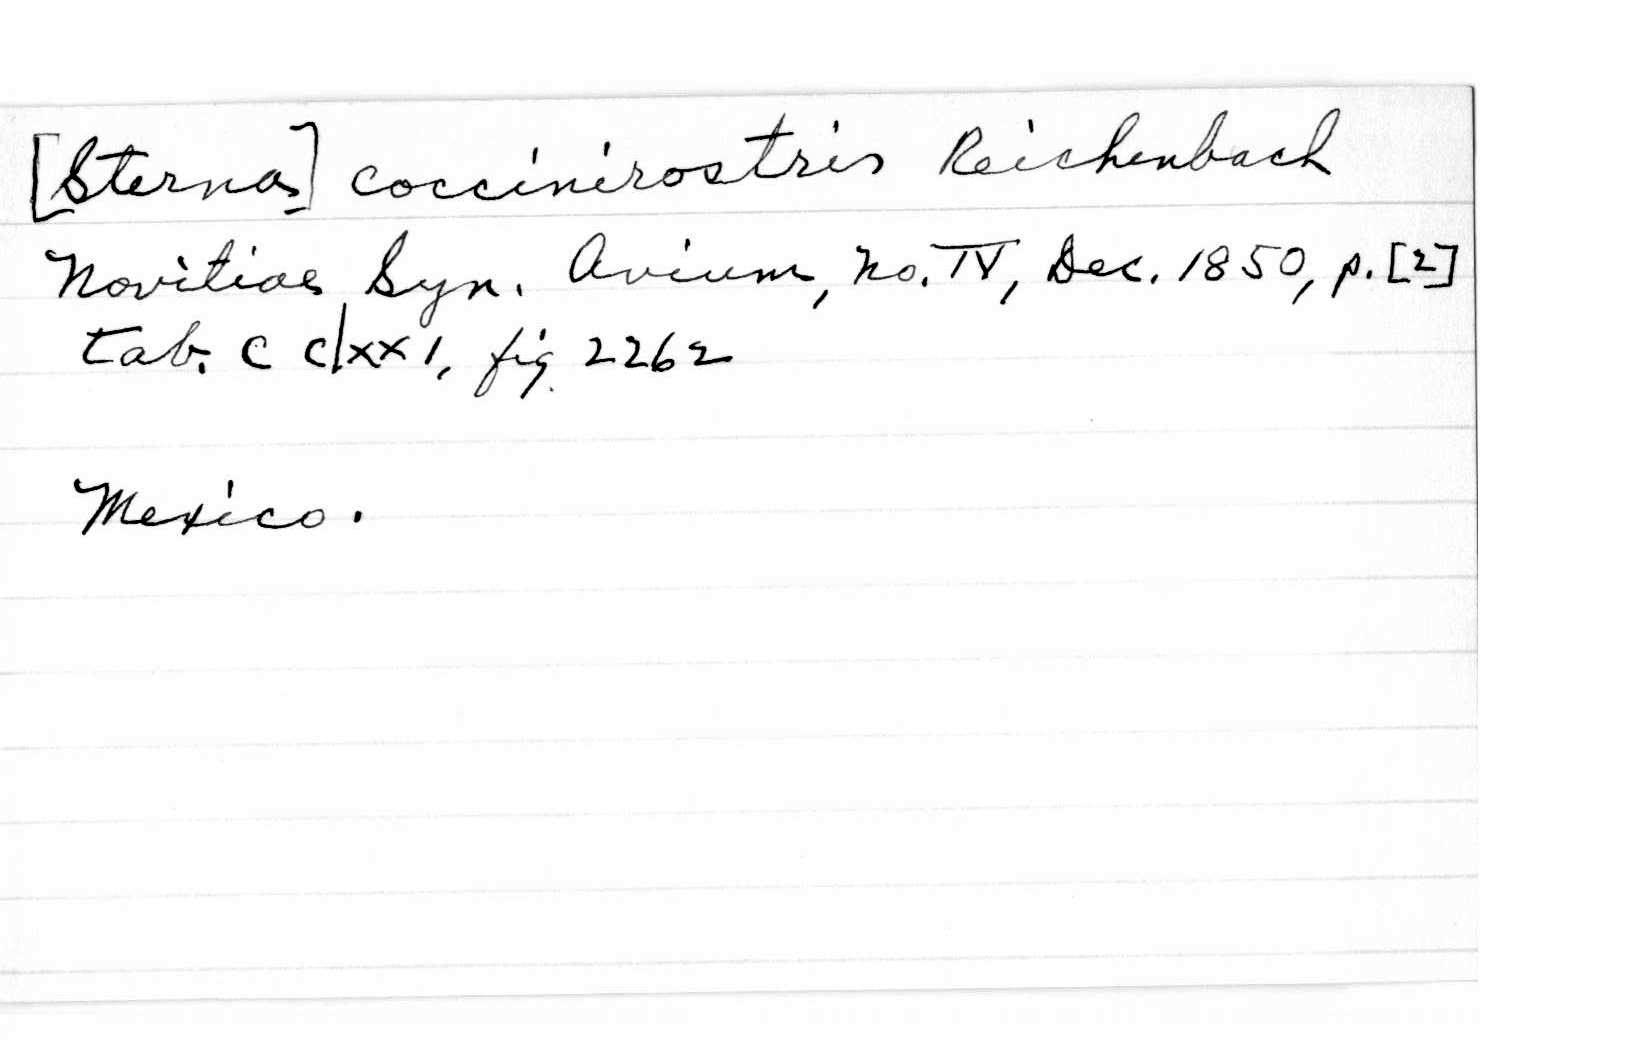 [Sterna] coccinirostris Reichenbach
Novitiae Syn. Avium, No. IV, Dec. 1850, p. [2]
tab. c clxx1, fig. 2262
Mexico.